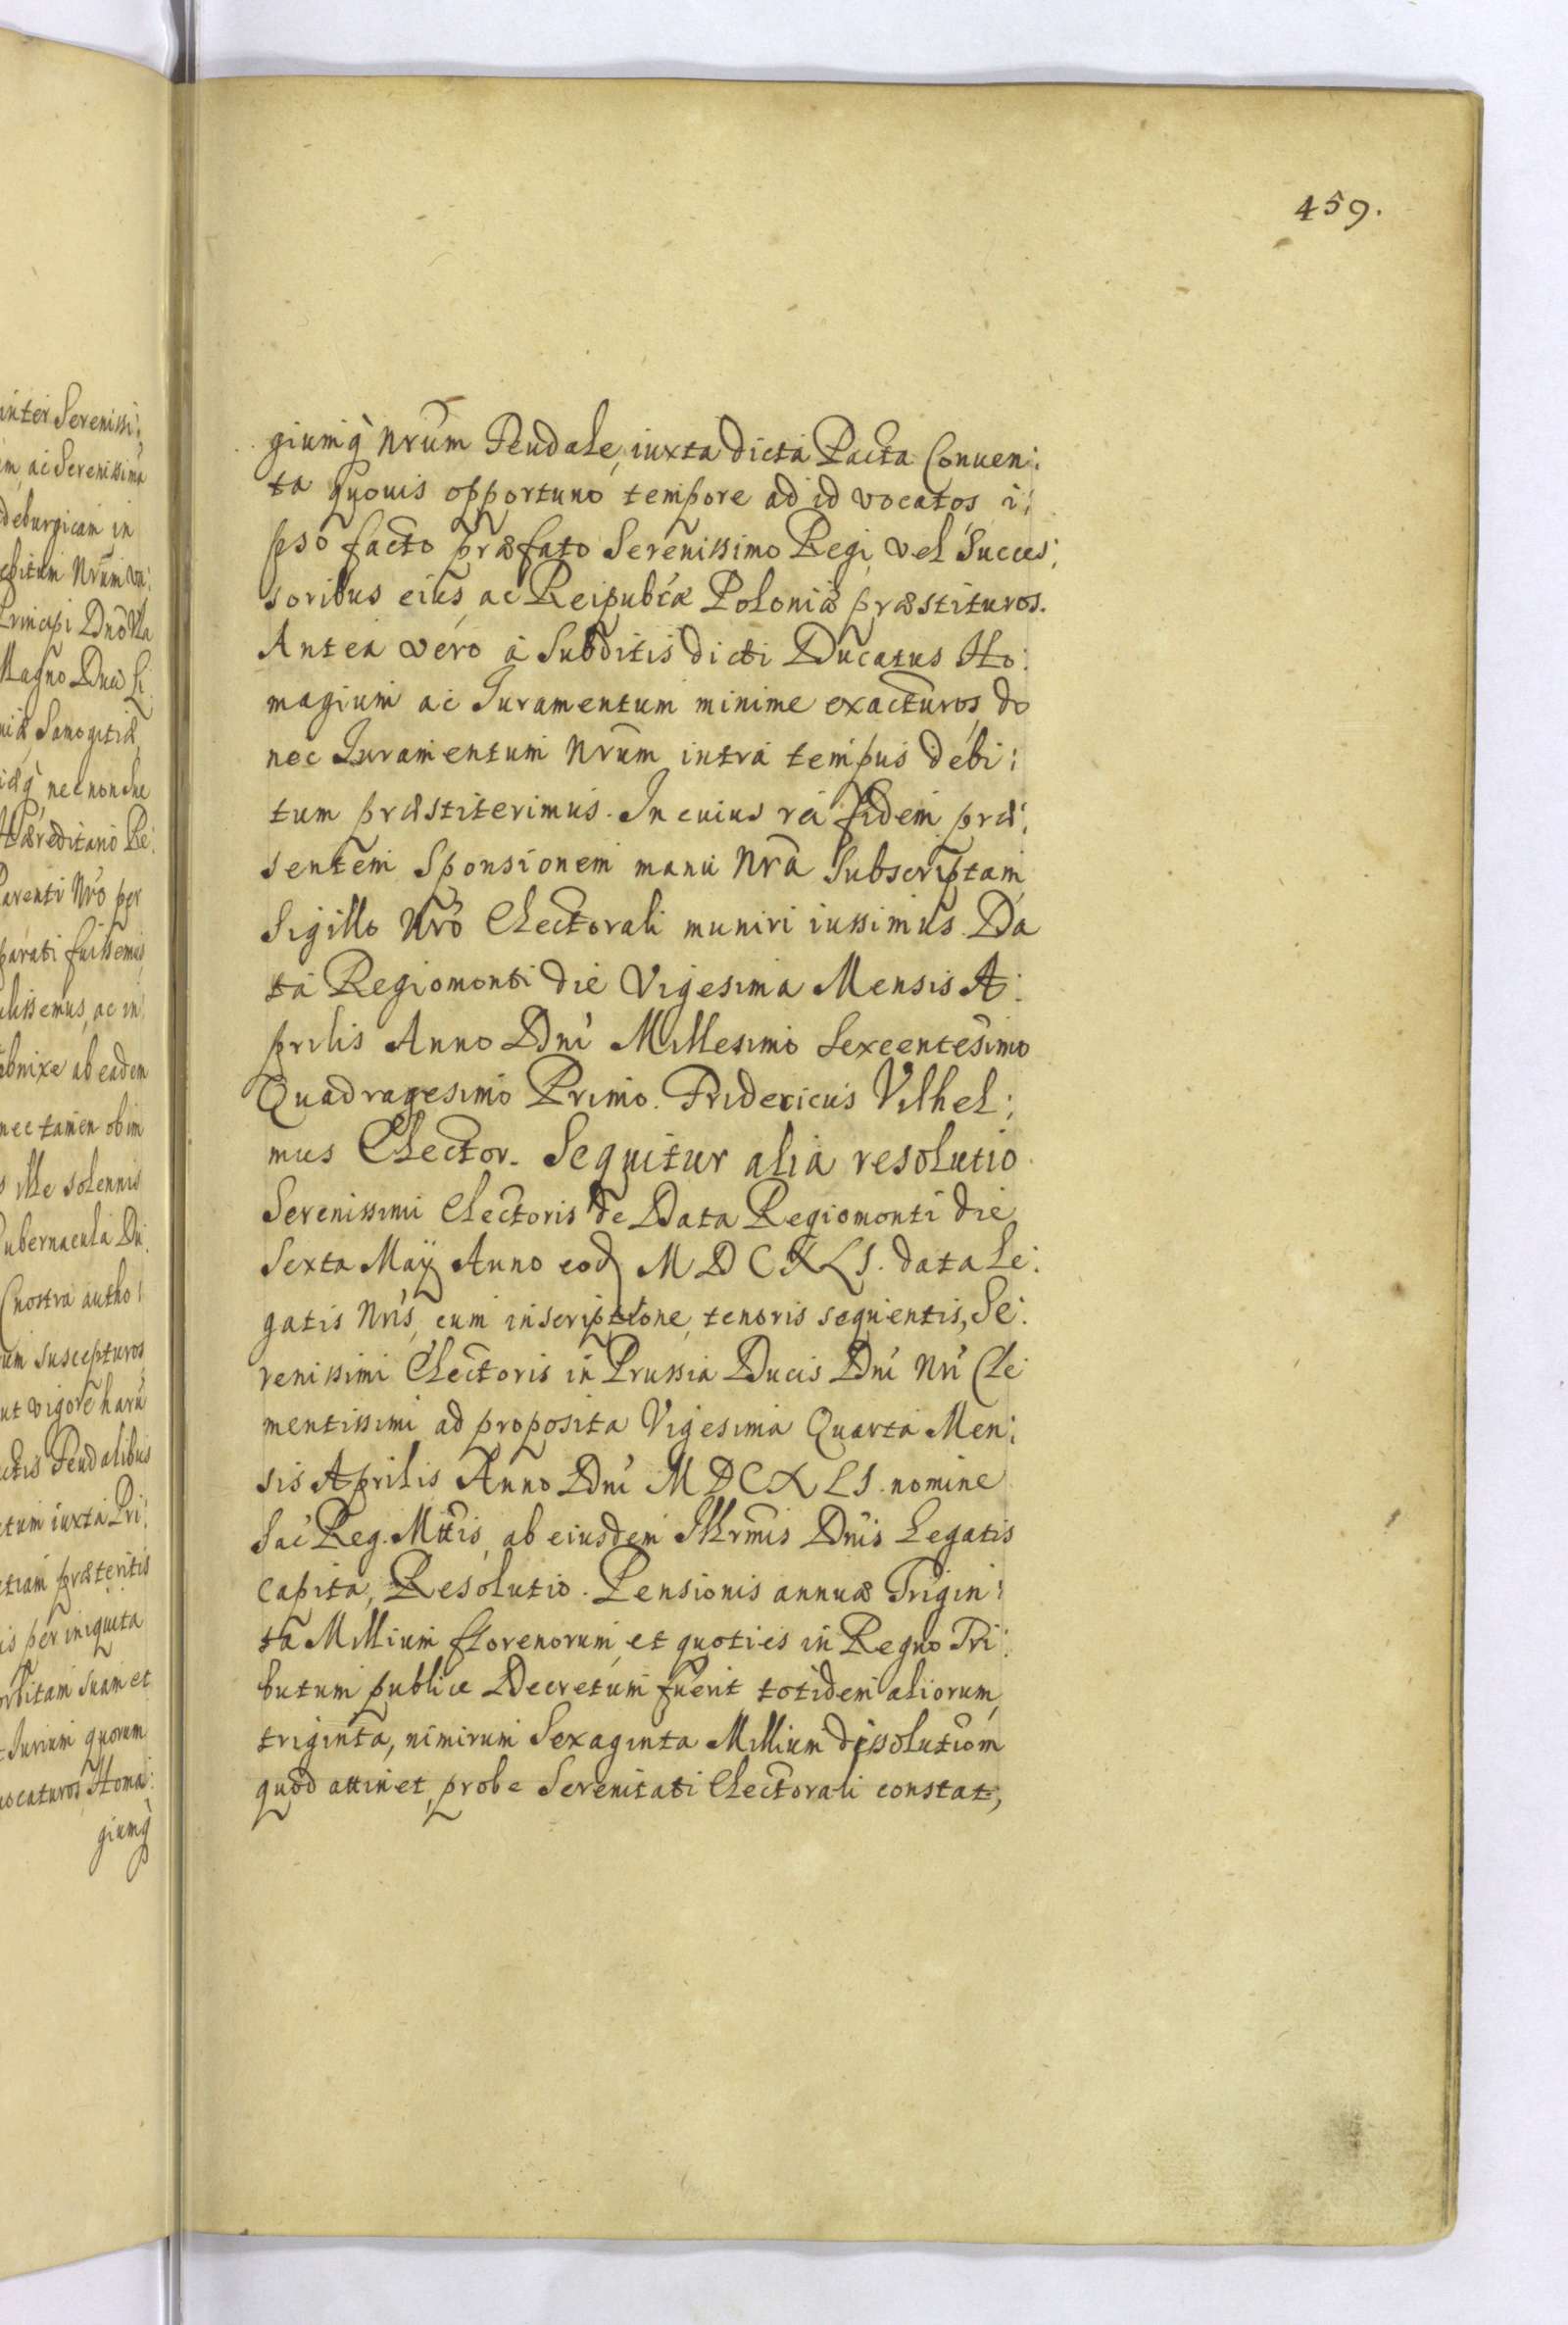 459.
giumq̀ Nrum̃ Feudale, iuxta dicta Pacta Conuen:
ta quouis opportuno tempore ad id vocatos i:
pso facto præfato Serenissimo Regi vel Succes:
soribus eius ac Reipubcæ Poloniæ præstituros.
Antea vero a Subditis dicti Ducatus Ho:
magium ac Juramentum minime exacturos, do
nec Juramentum Nrum̃ intra tempus debi:
tum præstiterimus. In cuius rei fidem præ:
sentem Sponsionem manu Nrã Subscriptam
Sigillo Nrõ Electorali muniri iussimus. Da
ta Regiomonti die Vigesima Mensis A:
prilis Anno Dni Millesimo Sexcentesimo
Quadragesimo Primo. Fridericus Vilhel:
mus Elector. Sequitur alia resolutio
Serenissimi Electoris de Data Regiomonti die
Sexta Maÿ Anno eod MDCXLI. data Le:
gatis Nris, cum inscriptione, tenoris sequentis, Se:
renissimi Electoris in Prussia Ducis Dni Nri Cle
mentissimi ad proposita Vigesima Quarta Men:
sis Aprilis Anno Dni MDCXLI. nomine
Sac Reg. Mttis, ab eiusdem Illrmis Dnis Legatis
capita, Resolutio. Pensionis annuæ Trigin:
ta Millium florenorum, et quoties in Regno Tri:
butum publice Decretum fuerit totidem aliorum
triginta, nimirum Sexaginta Millium dissolutiom
quod attinet, probe Serenitati Electorali constat,
inter Serenissi:
ac Serenissima
deburgicam in
Nrum
Principi Dno Vla
Magno Duci Li
Samogitiæ
necnon
Hæreditario Re:
Parenti Nro per
parati fuissemus
ac in
obnixe ab eadem
nec tamen ob im
ille solennis
Gubernacula Du
nostra autho:
suscepturos
ut vigore
Feudalibus
iuxta Pri:
etiam præteritis
per iniquita
suam et
Jurium quorum
Homa:
giumq̀